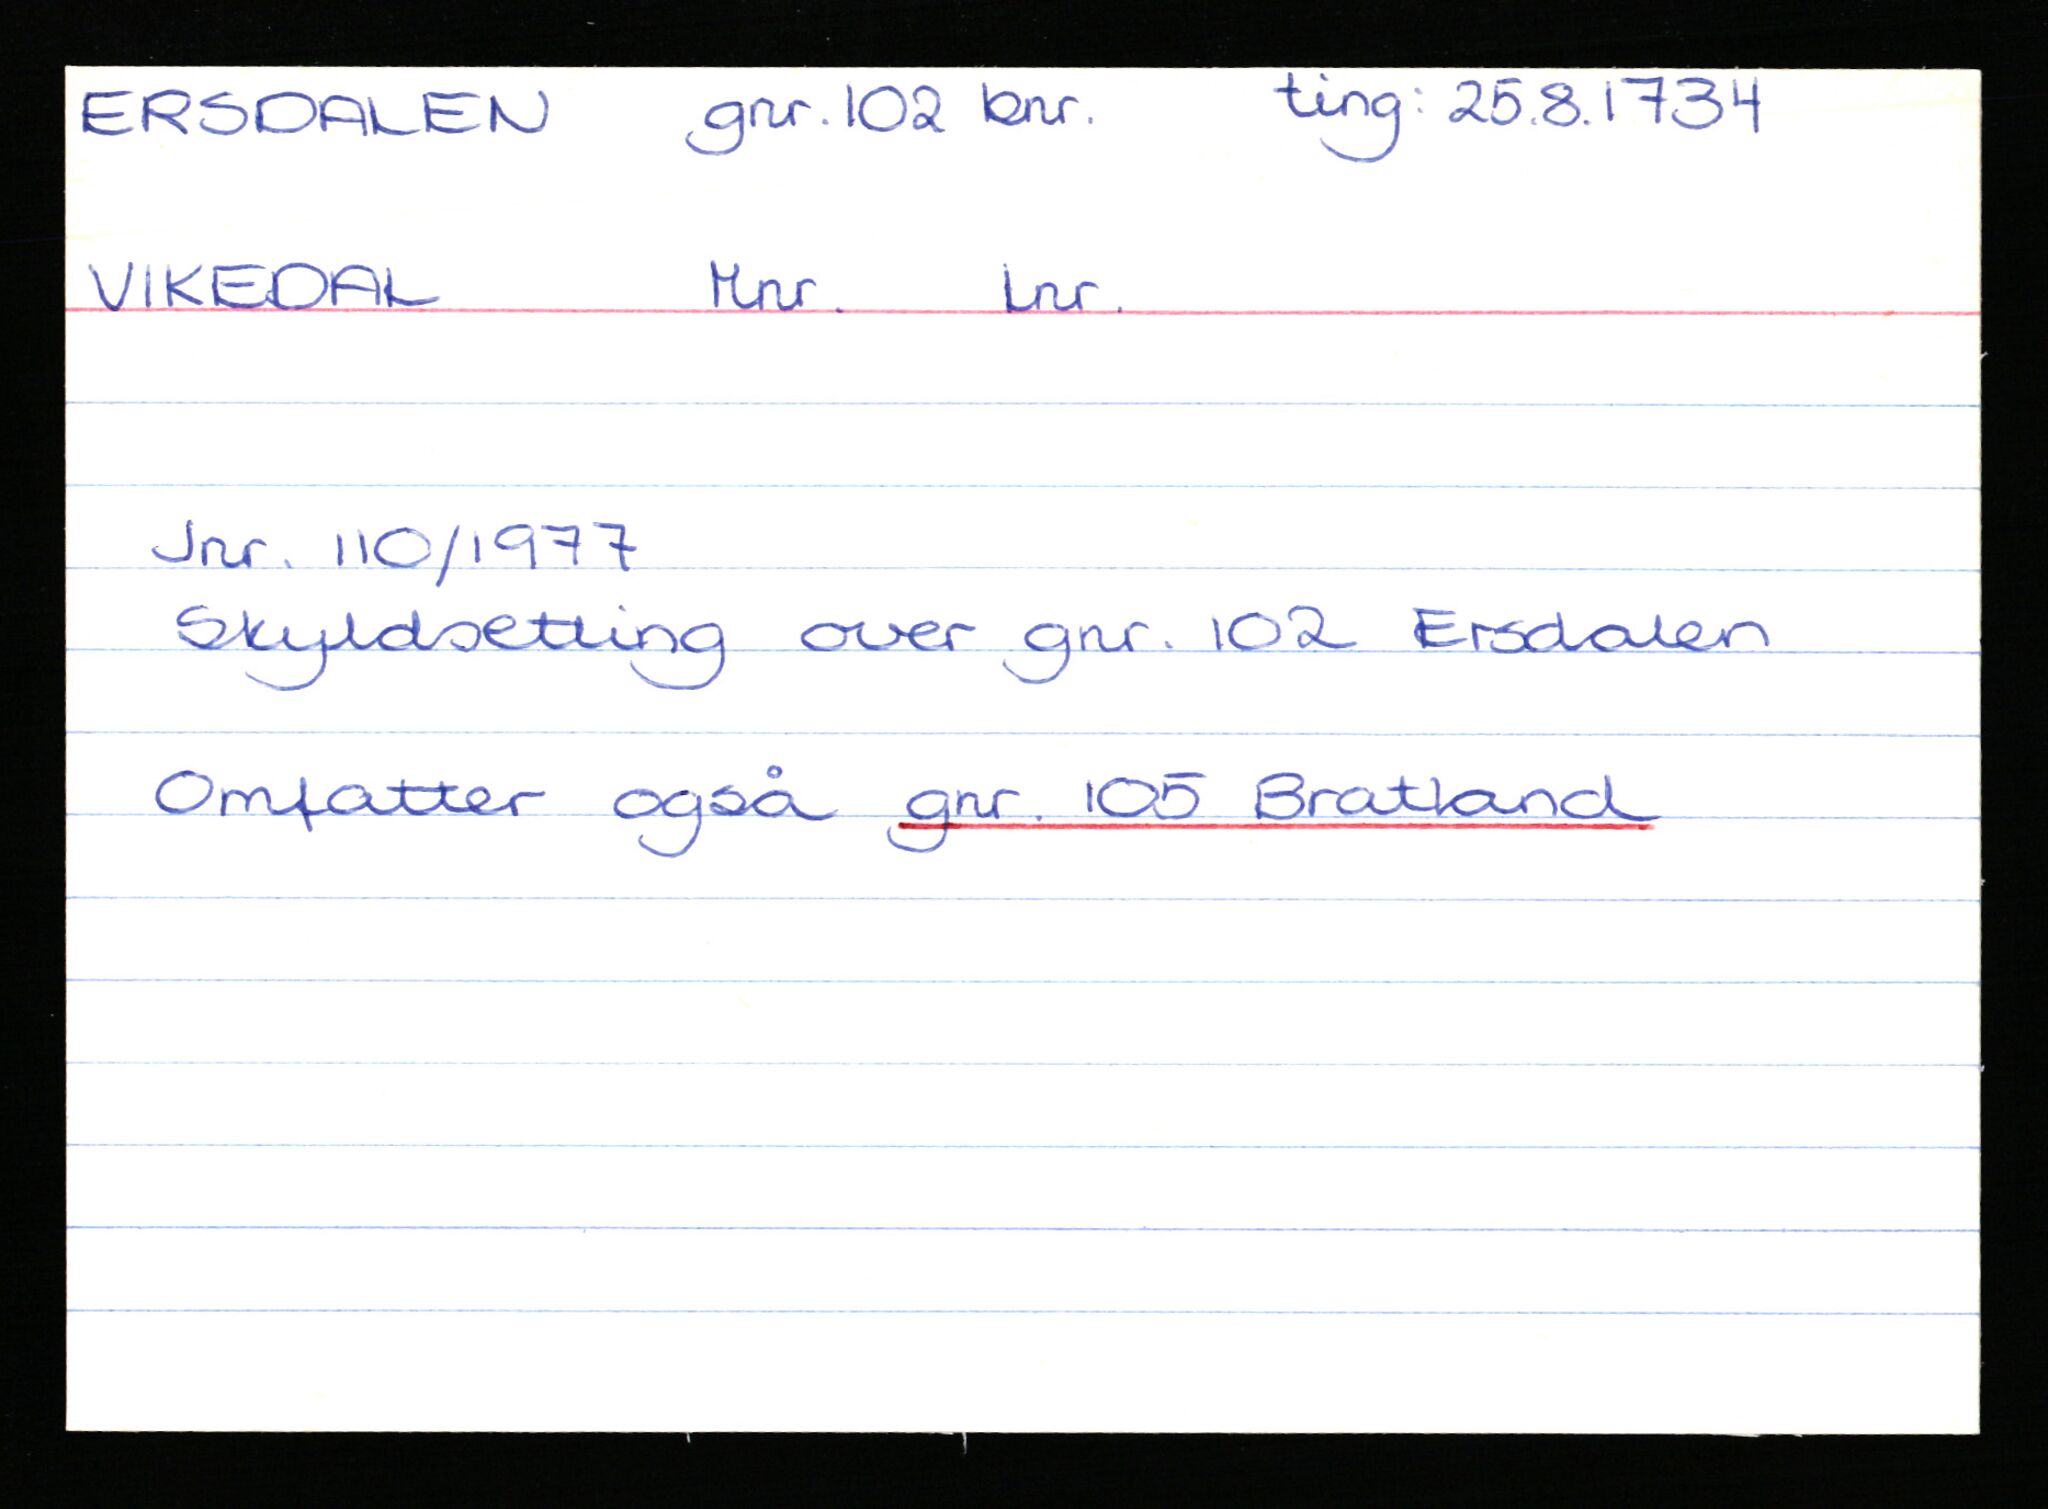 ERSDALEN gnr. 102 bnr. ting: 25.8.1734
VIKEDAL Mnr. Lnr.
Jnr. 110/1977
Skyldsetting over gnr. 102 Ersdalen
Omfatter også gnr. 105 Bratland